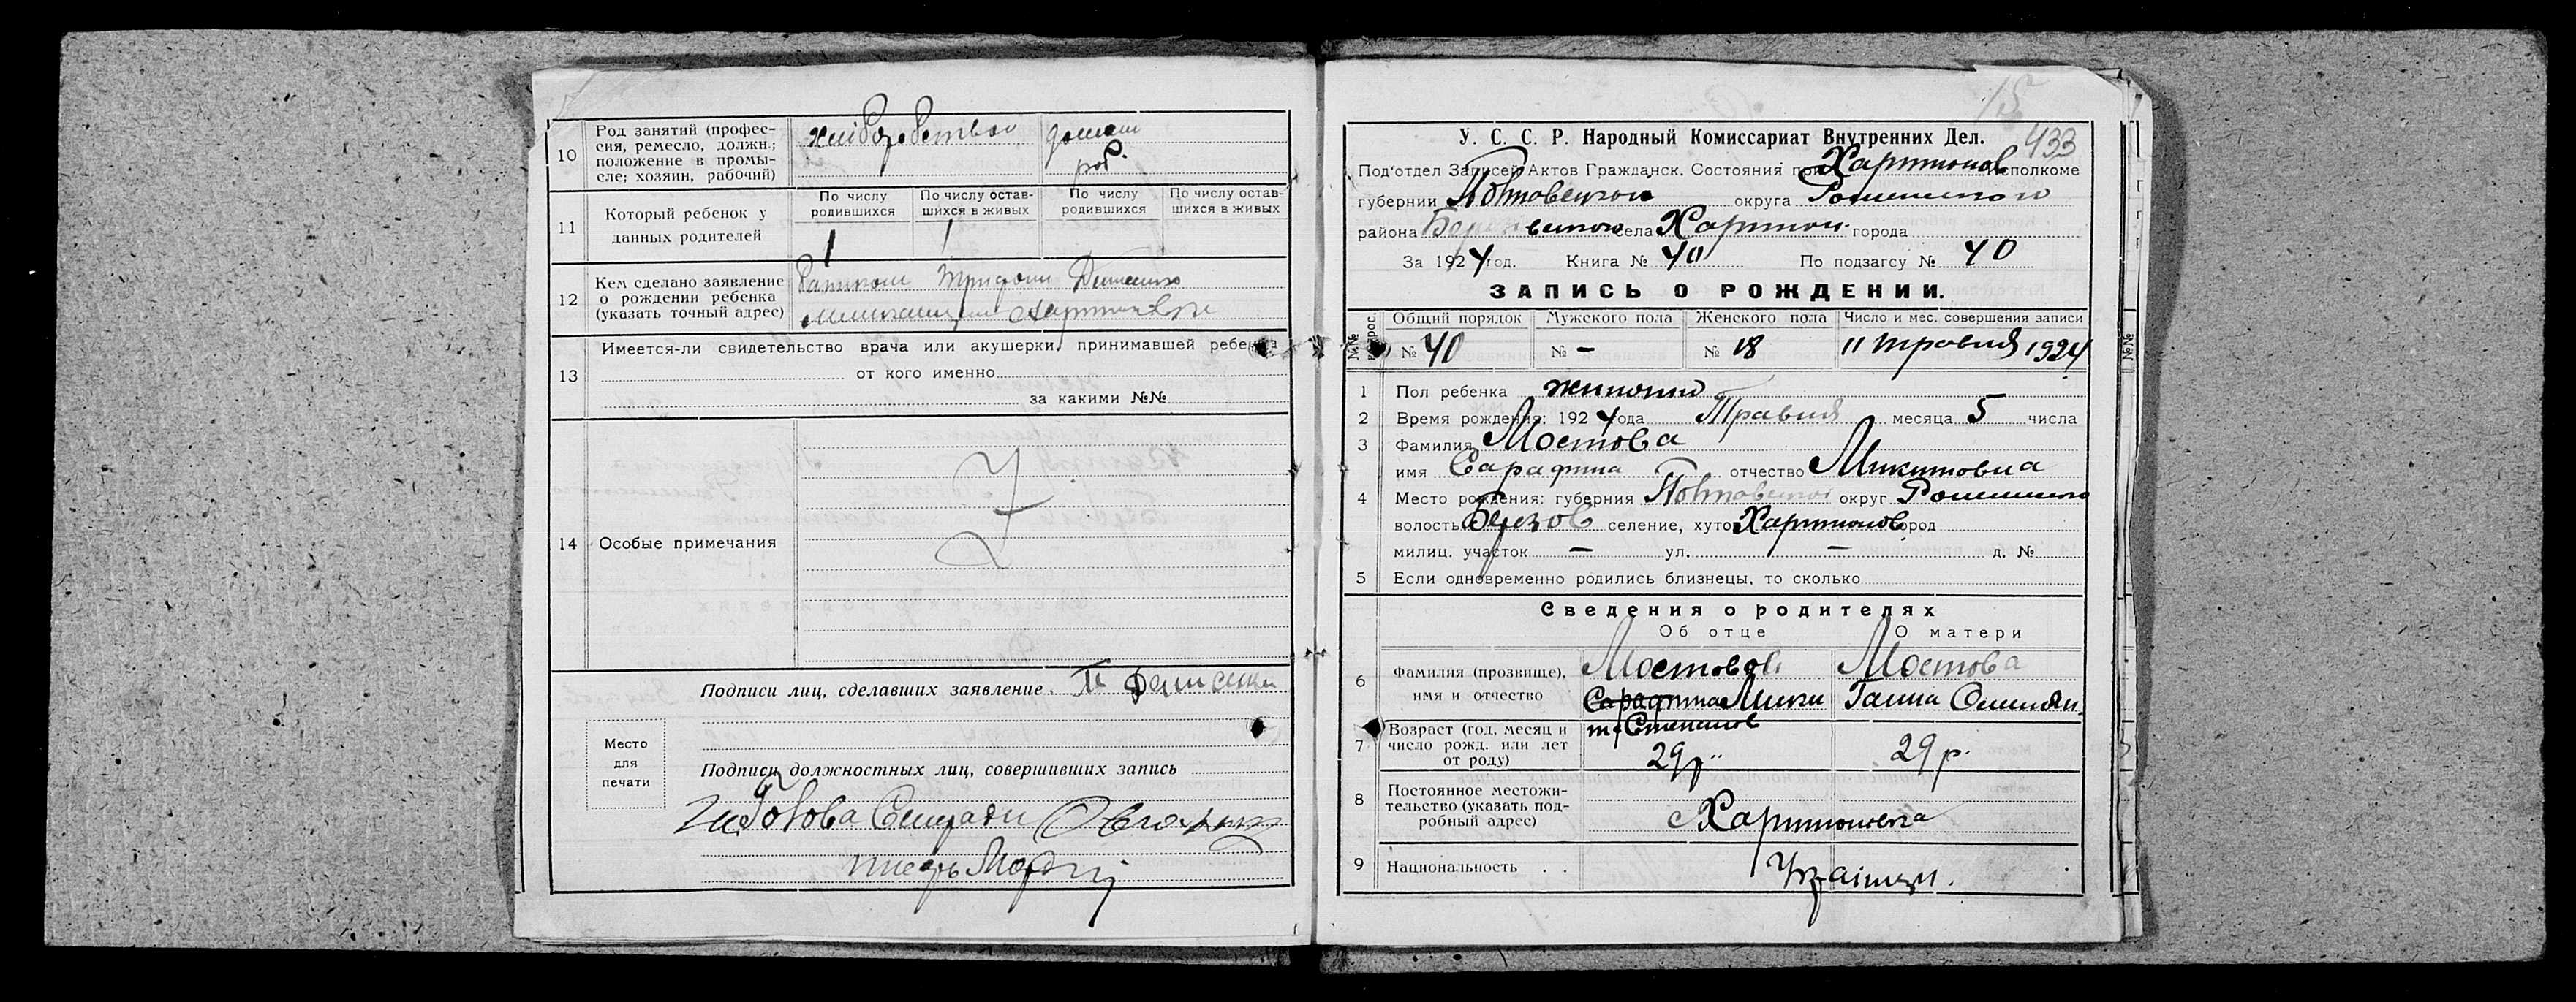 10 Род занятий (профес-
сия, ремесло, должн.;
положение в промы-
сле; хозяин, рабочий)
хліборобство домаш
роб.
11 Который ребенок у
данных родителей
По числу
родившихся
По числу остав-
шихся в живых
По числу
родившихся
По числу остав-
шихся в живых
1 1
12 Кем сделано заявление
о рождении ребенка
(указать точный адрес)
13 Имеется-ли свидетельство врача или акушерки, принимавшей ребенка
от кого именно
за какими №№
14 Особые примечания
Подписи лиц, сделавших заявление
Место
для
печати
Подписи должностных лиц, совершивших запись
Голова Сельради
15
433
У. С. С. Р. Народный Комиссариат Внутренних Дел.
Под'отдел Записей Актов Гражданск. Состояния при Харитонов исполкоме
губернии Полтавської округа Роменского
района села Харитон города
За 1924 год. Книга № 40 По подзагсу № 40
ЗАПИСЬ О РОЖДЕНИИ.
№№ вопрос. Общий порядок Мужского пола Женского пола Число и мес. совершения записи
№ 40 № — № 18 11 травня 1924
1 Пол ребенка жиночий
2 Время рождения: 1924 года Травня месяца 5 числа
3 Фамилия Мостова
имя Сарафина отчество Микитовна
4 Место рождения: губерния Полтавської округ Роменского
волость Берізов селение, хутор Харитонов город
милиц. участок — ул. — д. №
5 Если одновременно родились близнецы, то сколько
Сведения о родителях
Об отце О матери
6 Фамилия (прозвище),
имя и отчество
Мостовой Мостова
Сарафина Мики Ганна
та Степанов
7 Возраст (год, месяц и
число рожд. или лет
от роду)
29 р. 29 р.
8 Постоянное местожи-
тельство (указать под-
робный адрес)
Харитоновка
9 Национальность . .
Українці.